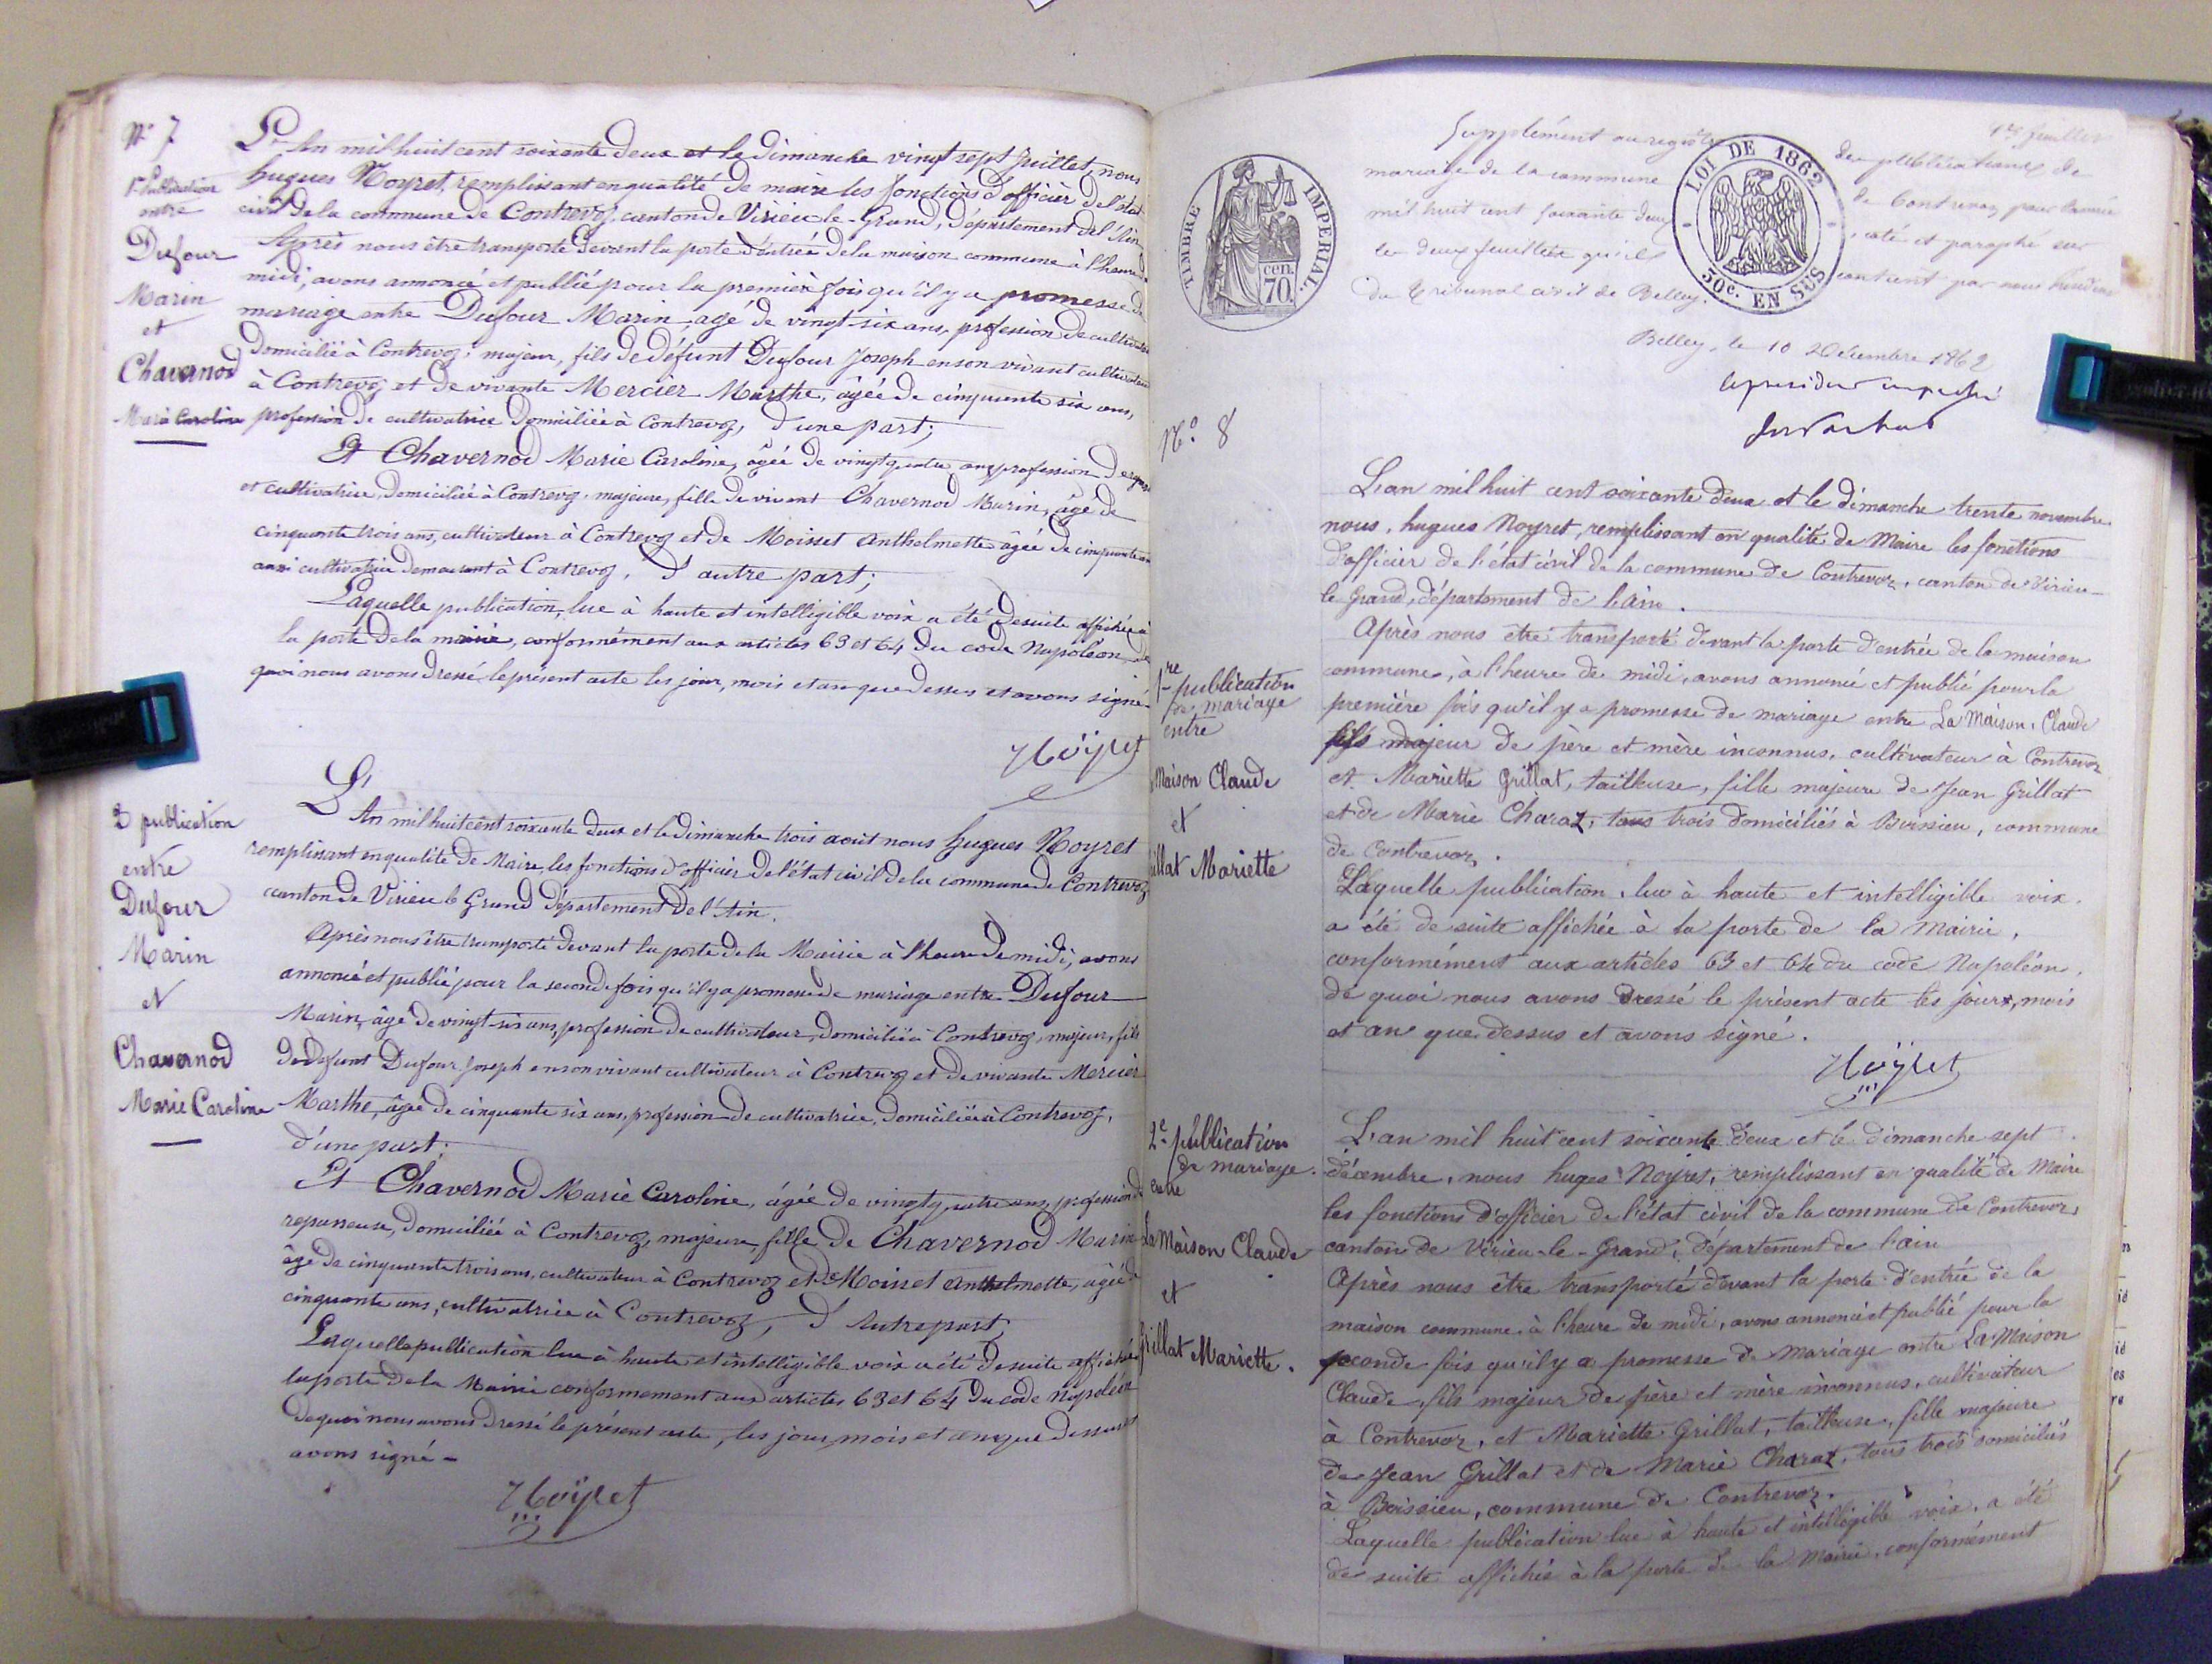 N° 7
1re Publication
entre
Dufour
Marin
et
Chavernod
Marie Caroline
L'An mil huit cent soixante deux et le dimanche vingt sept Juillet, nous
hugues Noyret, remplissant en qualité de maire les fonctions d'officier de l'état
civil de la commune de Contrevoz, canton de Virieu-le-Grand, département de l'Ain
Après nous être transporté devant la porte d'entrée de la maison commune à l'heure de
midi, avons annoncé et publié pour la première fois qu'il y a promesse de
mariage entre Dufour Marin, agé de vingt-six ans, profession de cultivateur
domicilié à Contrevoz, majeur, fils de défunt Dufour Joseph en son vivant cultivateur
à Contrevoz et de vivante Mercier Marthe, âgée de cinquante six ans,
profession de cultivatrice domiciliée à Contrevoz, d'une part;
Et Chavernod Marie Caroline, âgée de vingt quatre ans, profession de
et cultivatrice, domiciliée à Contrevoz, majeure, fille de vivant Chavernod Marin, âgé de
cinquante trois ans, cultivateur à Contrevoz et de Moisset Anthelmette âgée de cinquante ans
aussi cultivatrice demeurant à Contrevoz, d'autre part;
Laquelle publication, lue à haute et intelligible voix a été desuite affichée à
la porte de la mairie, conformément aux articles 63 et 64 du code Napoléon de
quoi nous avons dressé le présent acte les jour, mois et an que dessus et avons signé
Noyret
2 publication
entre
Dufour
Marin
et
Chavernod
Marie Caroline
L'An mil huit cent soixante deux et le dimanche trois aout nous hugues Noyret
remplissant en qualité de Maire, les fonctions d'officier de l'état civil de la commune de Contrevoz
canton de Virieu le Grand département de l'Ain.
Après nous être transporté devant la porte de la Mairie à l'heure de midi, avons
annoncé et publié pour la seconde fois qu'il y a promesse de mariage entre Dufour
Marin, âgé de vingt-six ans, profession de cultivateur, domicilié à Contrevoz, majeur, fils
de defunt Dufour Joseph en son vivant cultivateur à Contrevoz et de vivante Mercier
Marthe, âgée de cinquante six ans, profession de cultivatrice, domiciliée à Contrevoz,
d'une part;
Et Chavernod Marie Caroline, âgée de vingt quatre ans, profession de
repasseuse, domiciliée à Contrevoz, majeure, fille de Chavernod Marin
âgé de cinquante trois ans, cultivateur à Contrevoz et de Moisset Anthelmette, âgée de
cinquante ans, cultivatrice à Contrevoz, d'autre part;
Laquelle publication lue à haute et intelligible voix a été desuite affichée
la porte de la Mairie conformement aux articles 63 et 64 du code Napoléon
de quoi nous avons dressé le présent acte, les jour, mois et an que dessus et
avons signé -
Noyret
TIMBRE IMPERIAL
cen. 70
LOI DE 1862
50c. EN SUS
Supplément au registre des publications de
mariage de la commune de Contrevoz pour l'année
mil huit cent soixante deux, coté et paraphé sur
les deux feuillets qu'il contient par nous
du Tribunal civil de Belley.
Belley, le 10 Décembre 1862
N° 8
1re publication
de mariage
entre
Maison Claude
et
illat Mariette
L'an mil huit cent soixante deux et le dimanche trente novembre.
nous, hugues Noyret, remplissant en qualité de Maire les fonctions
d'officier de l'état civil de la commune de Contrevoz, canton de Virieu-
le Grand, département de l'ain.
Après nous être transporté devant la porte d'entrée de la maison
commune, à l'heure de midi, avons annoncé et publié pour la
première fois qu'il y a promesse de mariage entre La Maison, Claude
fils majeur de père et mère inconnus, cultivateur à Contrevoz
et Mariette Grillat, tailleuse, fille majeure de Jean Grillat
et de Marie Charat, tous trois domiciliés à Boissieu, commune
de Contrevoz.
Laquelle publication, lue à haute et intelligible voix,
a été de suite affichée à la porte de la Mairie,
conformément aux articles 63 et 64 du code Napoléon.
de quoi nous avons dressé le présent acte les jours, mois
et an que dessus et avons signé.
Noyret
2e publication
de mariage
entre
La Maison Claude
et
Grillat Mariette.
L'an mil huit cent soixante deux et le dimanche sept
décembre, nous huges Noyret, remplissant en qualité de Maire
les fonctions d'officier de l'état civil de la commune de Contrevoz,
canton de Virieu-le-Grand, département de l'ain
Après nous être transporté devant la porte d'entrée de la
maison commune, à l'heure de midi, avons annoncé et publié pour la
seconde fois qu'il y a promesse de mariage entre La Maison
Claude, fils majeur de père et mère inconnus, cultivateur
à Contrevoz, et Mariette Grillat, tailleuse, fille majeure
de Jean Grillat et de Marie Charat, tous trois domiciliés
à Boissieu, commune de Contrevoz.
Laquelle publication lue à haute et intelligible voix, a été
de suite affichée à la porte de la Mairie, conformément